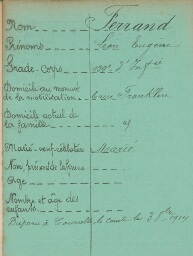 Nom Ferrand
Prénoms Léon Eugène
Grade - Corps d'Inf ie
Domicile au moment
de la mobilisation rue Franklin
Domicile actuel de
la famille id
Marié - veuf - célibataire Marié
Nom, prénoms de la femme
Age
Nombre et âge des
enfants
Disparu à le 3 1914